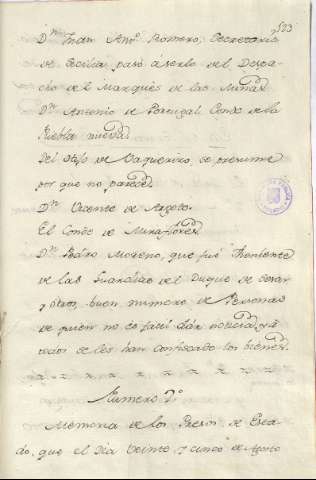 523
Dn. Juan Anto. Romero, Secretario
de Sicilia pasó á serlo del Despa-
cho del Marques de las Minas.
Dn. Antonio de Portugal Conde de la
Puebla nueva.
Del Otejo de Vaquerizo, se presume
por que no parece.
Dn. Vicente de Argote.
El Conde de Miraflores.
Dn. Pedro Moreno, que fué Theniente
de las Guardias del Duque de
y otros buen numero de Personas
de quien no es facil dár noticia, y á
todos se les han confiscado los bienes.
Numero 7o.
Memoria de los Presos de Esta-
do, que el Dia veinte, y cinco de Agosto